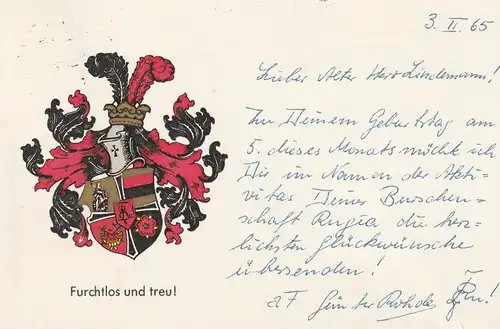 3. II. 65
Lieber Alter Herr Lindemann!
Zu Deinem Geburtstag am
5. dieses Monats möcht ich
Dir im Namen der Akti-
vitas Deiner Burschen-
schaft Rugia die herz-
lichsten Glückwünsche
übersenden!
Günter Rohde
Furchtlos und treu!